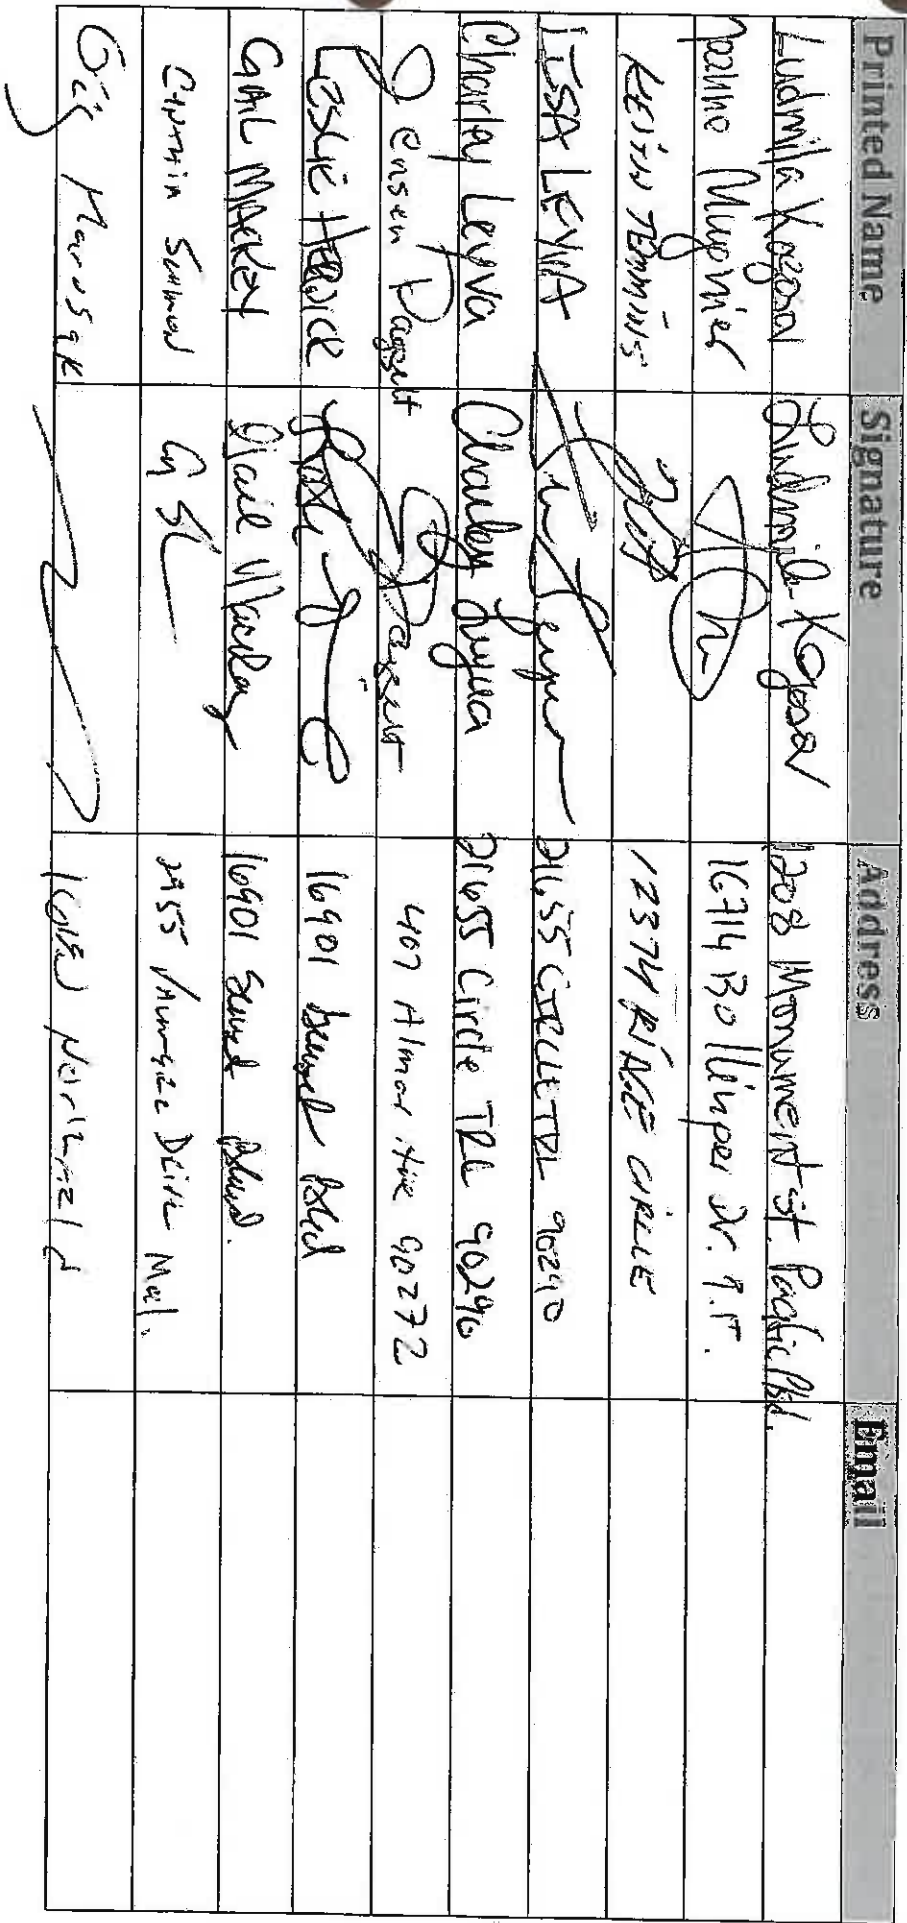 Printed Name Signature Address Email
Ludmila Kogan Ludmila Kogan 1208 Monument st. Pacific Pal.
Joanne Mugnier 16714 Bollinger Dr. P.P.
KEITH JENNINGS 12374 RIDGE CIRCLE
LISA LEYVA 21655 CIRCLE TRL 90290
Charley Leyva Charley Leyva 21655 Circle TRL 90290
Jensen Paggett Paggett 407 Almar Ave 90272
LESLIE 16901 Sunset Blvd
GAIL MACKEY Gail Mackey 16901 Sunset Blvd.
2955 Drive Mal.